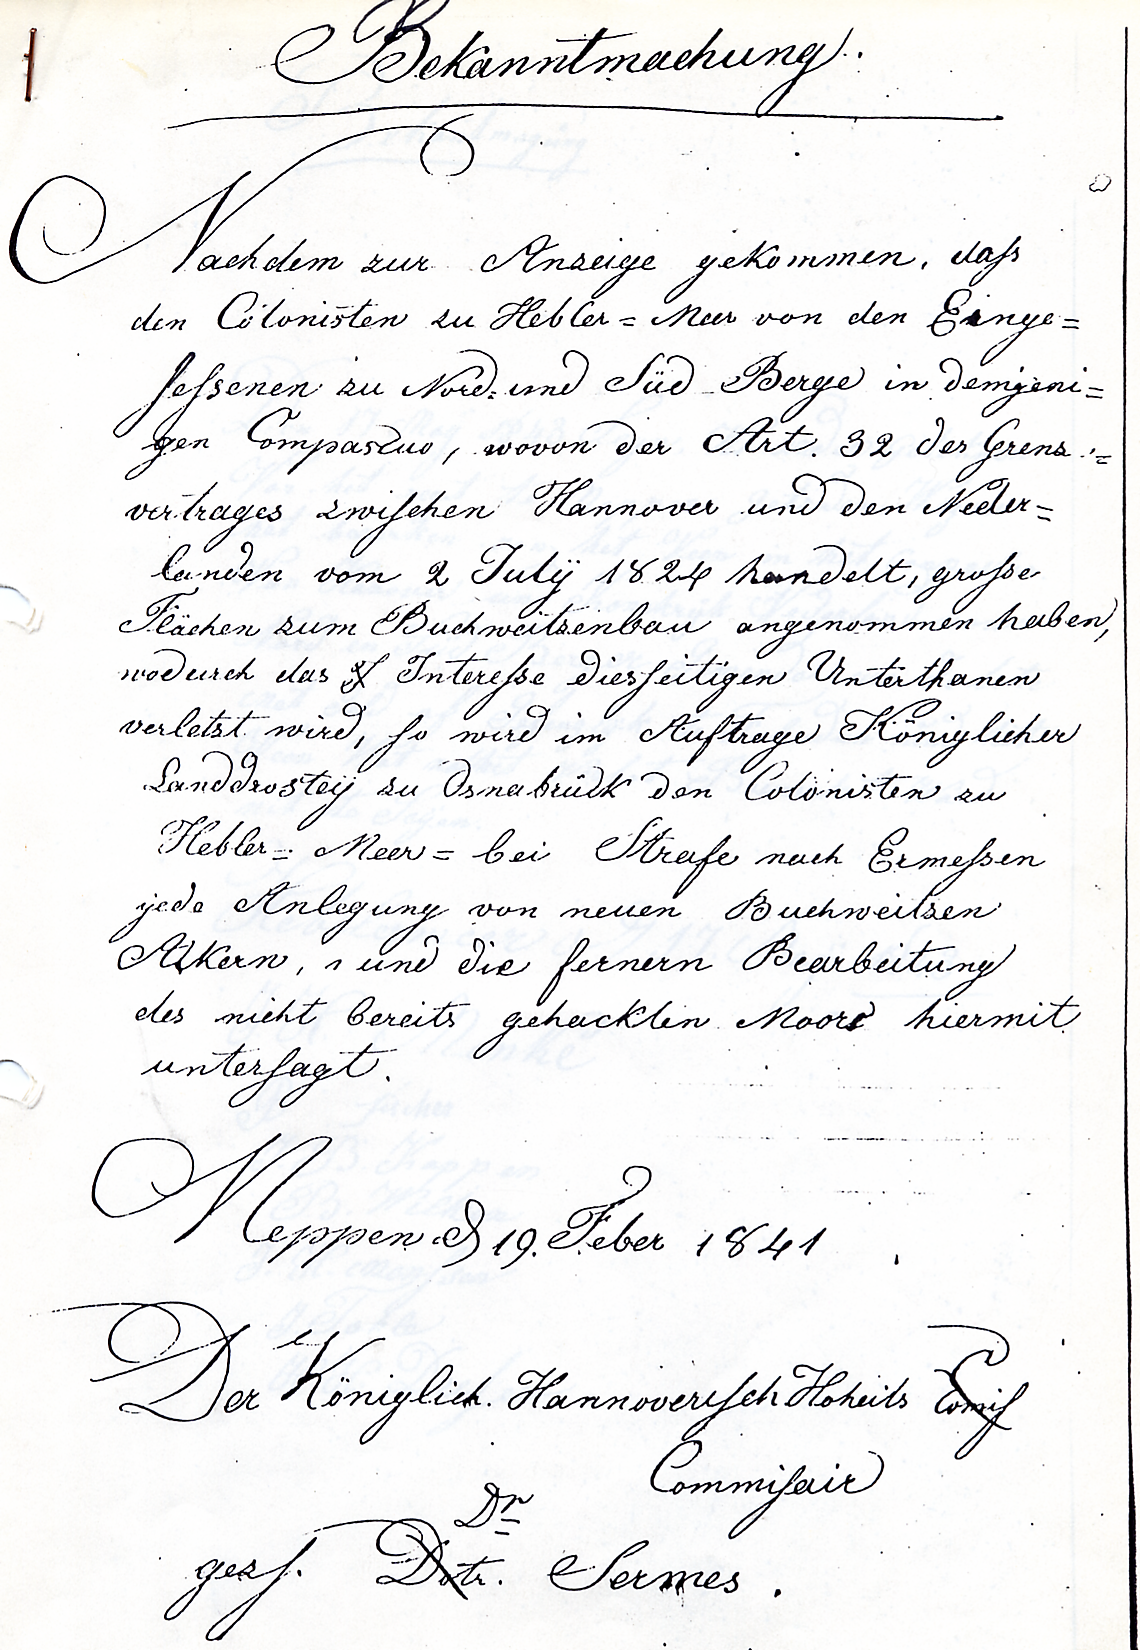 Bekanntmachung.
Nachdem zur Anzeige gekommen, daſs
den Colonisten zu Hebler = Meer von den Einge=
ſeſsenen zu Nord= und Süd Berge in demjeni=
gen Compascuo, wovon der Art. 32 des Grenz=
vertrages zwiſchen Hannover und den Neder=
landen vom 2 Julÿ 1824 handelt, groſse
Flächen zum Buchweitzenbau angenommen haben,
wodurch das Intereſse diesſeitigen Unterthanen
verletzt wird, ſo wird im Auftrage Königlicher
Landdrosteÿ zu Osnabrück den Colonisten zu
Hebler= Meer= bei Strafe nach Ermeſsen
jede Anlegung von neuen Buchweitzen
Akkern, und die fernern Bearbeitung
des nicht bereits gehackten Moors hiermit
unterſagt.
Meppen d 19. Feber 1841
Der Königlich. Hannoveriſch Hoheits Comiſ
Commiſair
Dr
gez ſ. Dotr. Sermes.